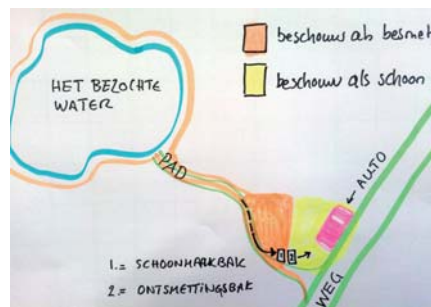 beschouw als besmet
beschouw als schoon
HET BEZOCHTE
WATER
PAD
AUTO
1 2
1.= SCHOONMAAKBAK
2.= ONTSMETTINGSBAK
WEG